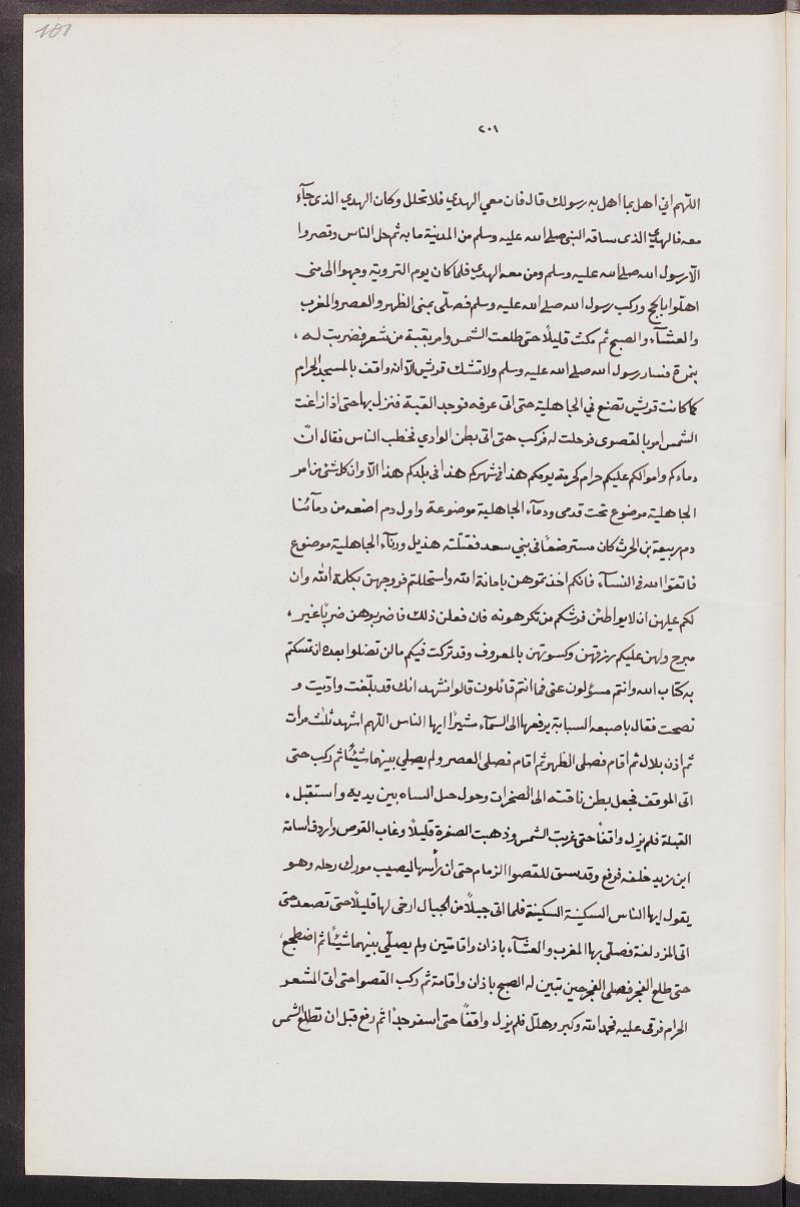 101
٢٠١
اللهم اني اهل بما اهل به رسولك قال فان معي الهدي فلا تحلل وكان الهدي الذى جآء
معه فالهدي الذى ساقه النبى صلے الله عليه وسلم من المدينة مابه ثم حل الناس وقصروا
الّا رسول الله صلے الله عليه وسلم ومن معه الهدي فلما كان يوم التروية وجهوا الى منى
اهلّوا بالحج وركب رسول الله صلے الله عليه وسلم فصلّى بمنى الظهر والعصر والمغرب
والعشآء والصبح ثم مكث قليلًا حتى طلعت الشمس وامر بقبة من شعر فضربت له ،
بنمرة فسار رسول الله صلے الله عليه وسلم ولا تشك قريش الّا انه واقف بالمسجد الحرام
كما كانت قريش تصنع في الجاهلية حتى اتى عرفه فوجد القبة فنزل بها حتى اذا زاغت
الشمس امر بالقصوى فرحلت له فركب حتى اتى بطن الوادي فخطب الناس فقال انّ
دماءكم واموالكم عليكم حرام كحرمة يومكم هذا في شهركم هذا فى بلدكم هذا الّا وان كل شئ من امر
الجاهلية موضوع تحت قدمى ودمآء الجاهلية موضوعة واول دم اضعه من دمآئنا
دم ربيعة بن الحرث كان مسترضعًا فى بني سعد فقتلته هذيل وربآء الجاهلية موضوع
فاتقوا الله فى النسآء فانكم اخذتموهن بامانة الله واستحللتم فروجهن بكلمة الله وان
لكم عليهن ان لا يواطئن فرشكم من تكرهونه فان فعلن ذلك فاضربوهن ضربًا غير ،
مبرح ولهن عليكم رزقهن وكسوتهن بالمعروف وقد تركت فيكم مالن تضلوا بعده ان تمسكتم
به كتاب الله وانتم مسؤلون عنى فما انتم قائلون قالوا نشهد انك قد بلّغت وادّيت و
نصحت فقال باصبعه السبابة يرفعها الى السمآء مشيرًا ايها الناس اللهم اشهد ثلث مرأت
ثم اذن بلال ثم اقام فصلى الظهر ثم اقام فصلى العصر ولم يصلي بينهما شيئًا ثم ركب حتى
اتى الموقف فجعل بطن ناقته الى الصخرات وحول حبل الساه بين يديه واستقبل .
القبلة فلم يزل واقفًا حتى غربت الشمس وذهبت الصفرة قليلًا وغاب القرص واردف اسامة
ابن زيد خلفه فرفع وقد سىق للقصوا الزمام حتى ان رأسها ليصيب مورك رحله وهو
يقول ايها الناس السكينة السكينة فلما اتى جبلًا من الجبال ارخى لها قليلًا حتى تصعد حتى
اتى المزدلفة فصلّى بها المغرب والعشآء باذان واقامتين ولم يصلّي بينهما شيئًا ثم اضطجع
حتى طلع الفجر فصلى الفجر حين تبين له الصبح باذان واقامة ثم ركب القصوا حتى اتى المشعر
الحرام فرقى عليه فحمد الله وكبر وهلّل فلم يزل واقفًا حتى اسفر جدًا ثم رفع قبل ان تطلع الشمس